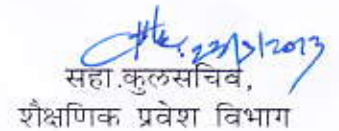 23/3/2013
सहा.कुलसचिव,
शैक्षणिक प्रवेश विभाग